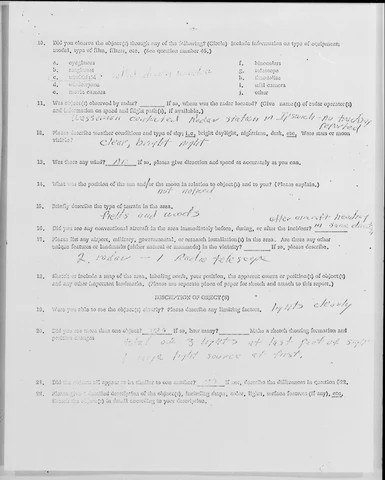 10. Did you observe the object(s) through any of the following? (Circle) Include information on type of equipment:
model, type of film, filters, etc. (See question number 45.)
a. eyeglasses f. binoculars
b. sunglasses g. telescope
c. windshield h. theodolite
d. i. still camera
e. movie camera j. other
11. Was object(s) observed by radar? if so, where was the radar located? (Give name(s) of radar operator(s)
and information on speed and flight path(s), if available.)
contacted radar station in Ipswich - no tracking
reported
12. Please describe weather conditions and type of sky; i.e. bright daylight, nighttime, dusk, etc. Were stars or moon
visible? clear, bright night
13. Was there any wind? no if so, please give direction and speed as accurately as you can.
14. What was the position of the sun and/or the moon in relation to object(s) and to you? (Please explain.)
not noticed
15. Briefly describe the type of terrain in the area.
fields and woods other aircraft heading
16. Did you see any conventional aircraft in the area immediately before, during, or after the incident? in same
17. Please list any airports, military, governmental, or research installation(s) in the area. Are there any other
unique features or landmarks (either natural or manmade) in the vicinity? if so, please describe.
2 radar - 1 Radio telescope
18. Sketch or include a map of the area, labeling north, your position, the apparent course or position(s) of object(s)
and any other important landmarks. (Please use separate piece of paper for sketch and attach to this report.)
DESCRIPTION OF OBJECT(S)
19. Were you able to see the object(s) clearly? Please describe any limiting factors. lights clearly
20. Did you see more than one object? yes if so, how many? Make a sketch showing formation and
position changes
total of 3 lights at last part of sight
1 large light source at first.
21. Did the objects all appear to be similar to one another? If not, describe the differences in question #22.
22. Please give detailed description of the object(s), including shape, color, lights, surface features (if any), etc.